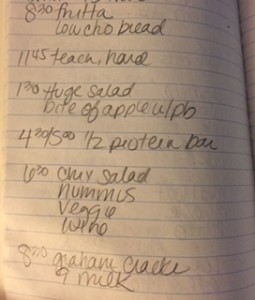 8:30 fritta
low cho bread
11:45 teach, hard
1:30 Huge salad
bite of apple w/pb
4:30/5:00 1/2 protein bar
6:30 chix salad
hummus
veggie
wine
8:30 graham cracke
milk